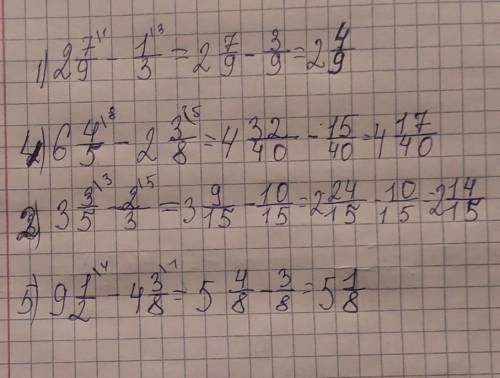 1) 2 7/9\1 - 1/3\3 = 2 7/9 - 3/9 = 2 4/9
4) 6 4/5\8 - 2 3/8\5 = 4 32/40 - 15/40 = 4 17/40
2) 3 3/5\3 - 2/3\5 = 3 9/15 - 10/15 = 2 24/15 - 10/15 = 2 14/15
5) 9 1/2\4 - 4 3/8\1 = 5 4/8 - 3/8 = 5 1/8